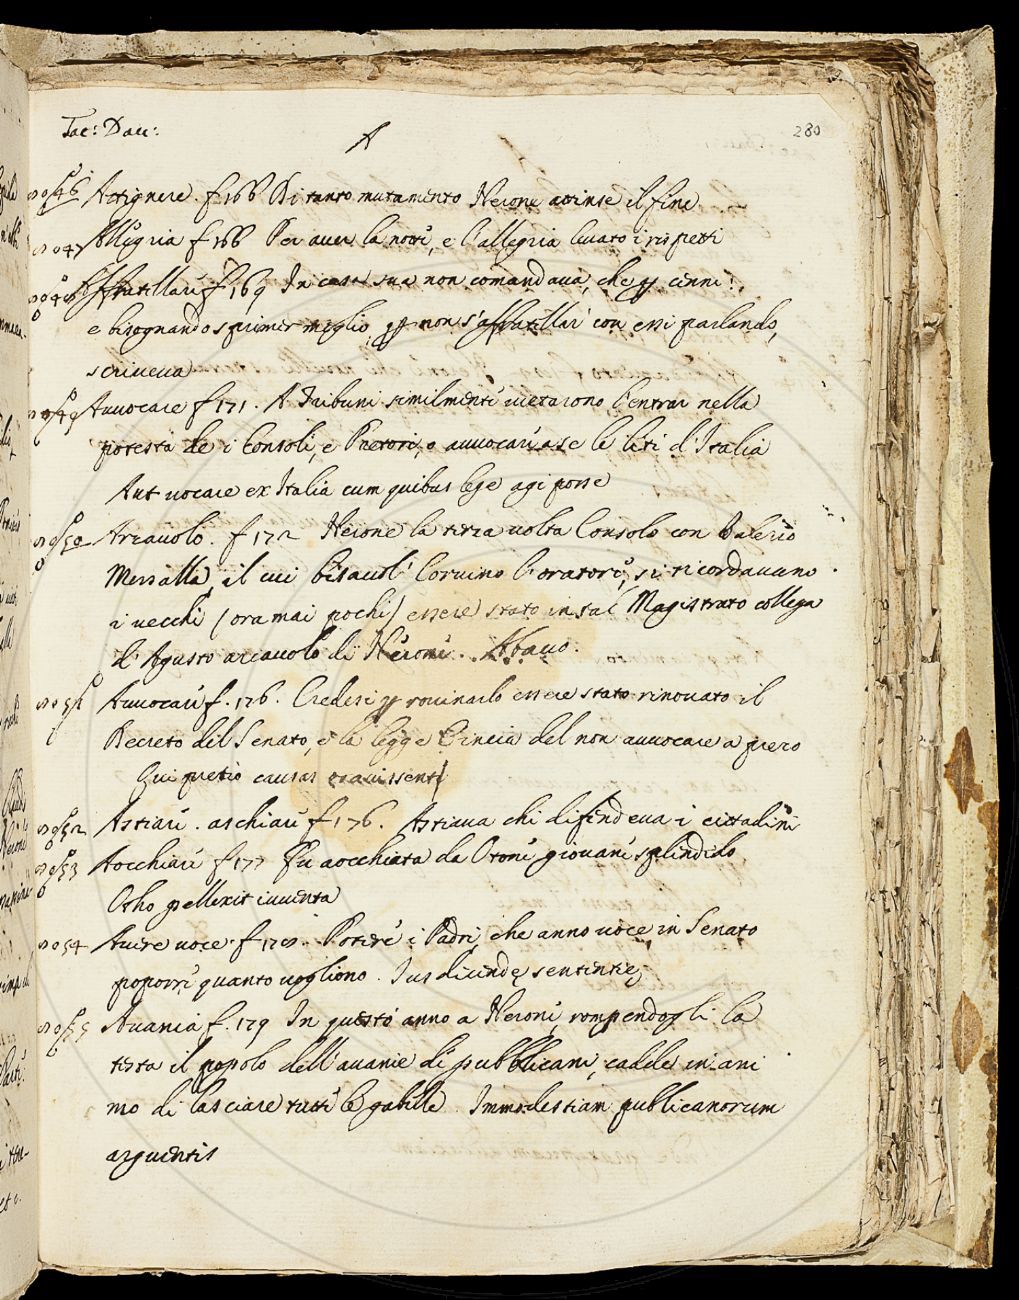 Tac: Dau:
A
280
Attignere. f 166 Di tanto mutamento Nerone attinse il fine
Allegria f 166 Per auer la notte, e l'allegria leuato i rispetti
Affratellare f 169 In casa sua non comandaua, che p cenni:
e bisognando esprimer meglio, p non s'affratellar con essi parlando,
scriueua
Auuocare f 171. A Tribuni similmente uietarono l'entrar nella
potestà de i Consoli, e Pretori, o auuocare a se le liti d'Italia
Aut uocare ex Italia cum quibus lege agi posse
Arcauolo. f 172 Nerone la terza uolta Consolo con Valerio
Messalla, il cui bisauolo Coruino l'oratore, si ricordauano
i uecchi (ora mai pochi) essere stato in tal Magistrato collega
d'Agusto arcauolo di Nerone. Abauo.
Auuocare f. 176. Credesi p rouinarlo essere stato rinouato il
Decreto del Senato, e la legge Cincia del non auuocare a prezo
Qui pretio causas orauissent
Astiare. aschiare f 176. Astiaua chi difendeua i cittadini
Aocchiare f 177 Fu aocchiata da Otone giouane splendido
Otho pellexit iuuenta
Auere uoce. f 178. Potere i Padri, che anno uoce in Senato
poporre quanto uogliono. Ius dicendę sententię
Auania f. 179 In questo anno a Nerone, rompendogli la
testa il popolo dell'auanie de pubblicani, cadde in ani
mo di lasciare tutte le gabelle. Immodestiam publicanorum
arguentis